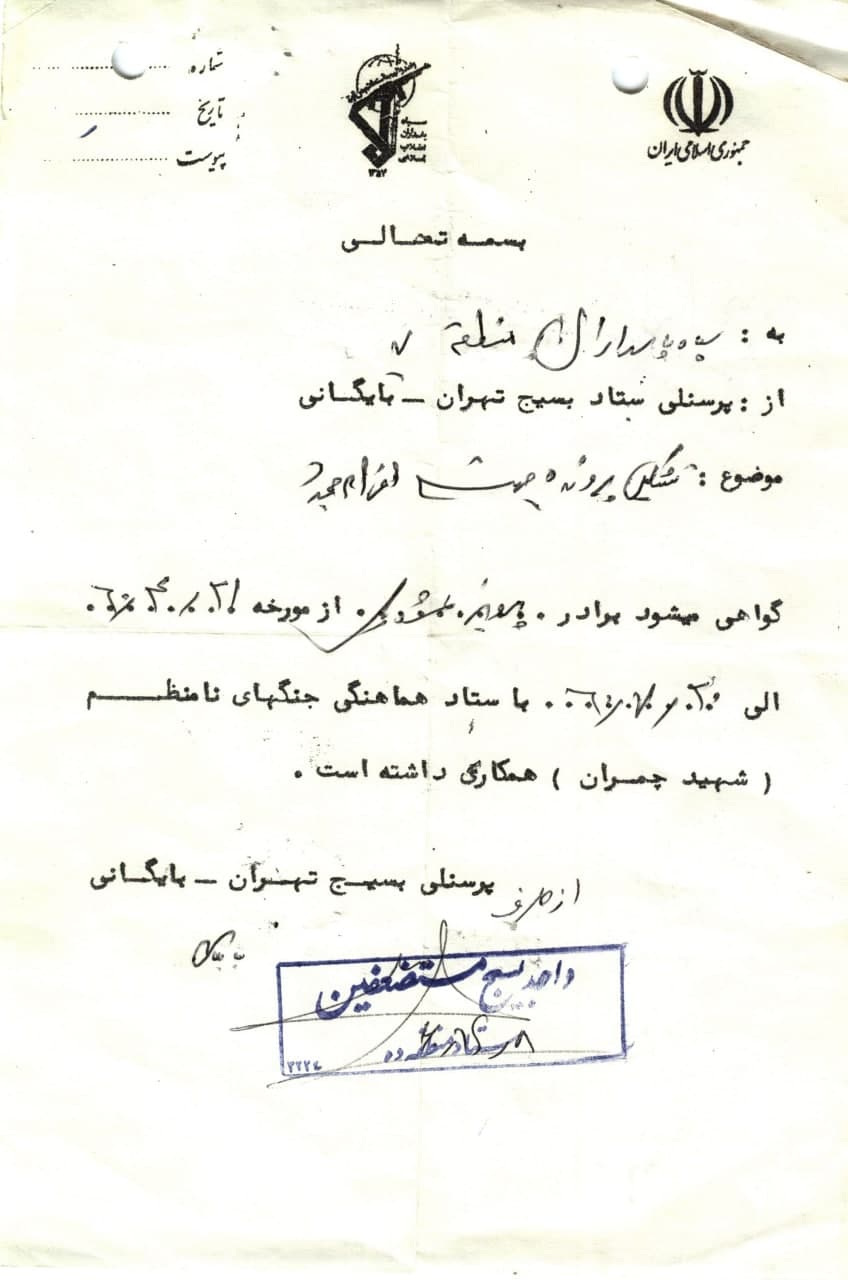 جمهوری اسلامی ایران
سپاه پاسداران انقلاب اسلامی
۱۳۵۷
شماره
تاریخ
پیوست
بسمه تعالی
به : سپاه پاسداران منطقه
از : پرسنلی ستاد بسیج تهران – بایگانی
موضوع : تشکیل پرونده جهت اعزام مجدد
گواهی میشود برادر . پرویز . از مورخه
الی با ستاد هماهنگی جنگهای نامنظم
( شهید چمران ) همکاری داشته است .
پرسنلی بسیج تهران – بایگانی
از طرف
واحد بسیج مستضعفین
ستاد منطقه ده